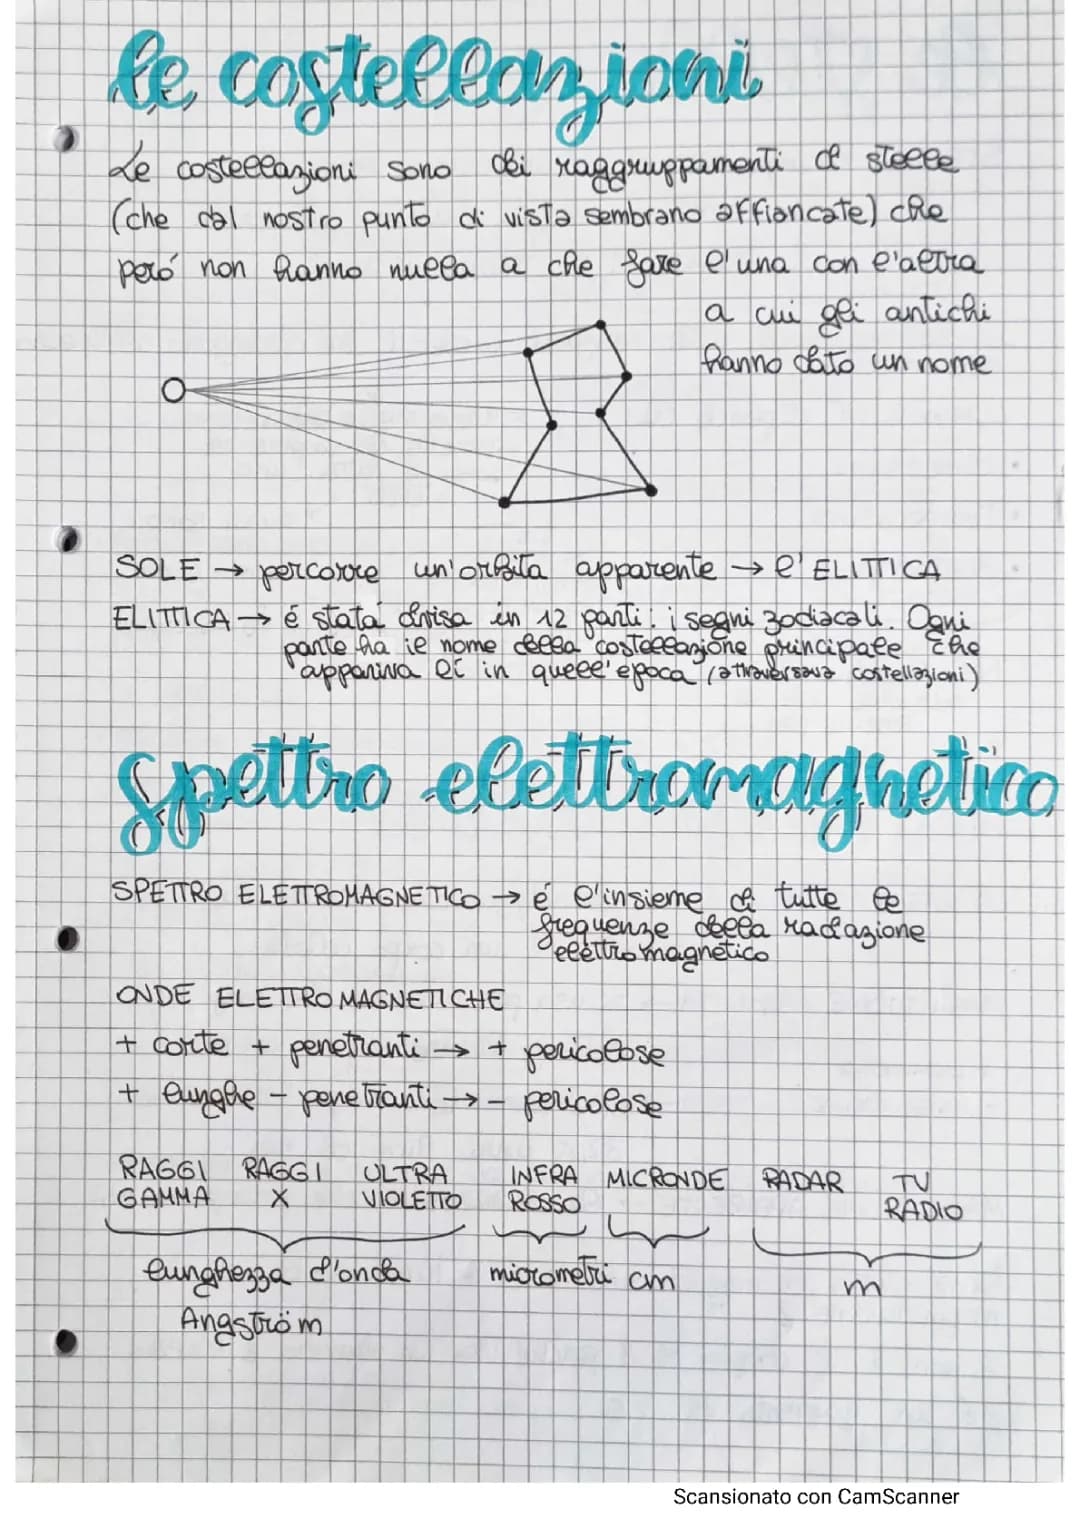 le costellazioni
Le costellazioni sono dei raggruppamenti di stelle
(che dal nostro punto di vista sembrano affiancate) che
peró non hanno nulla a che fare l'una con l'altra
a cui gli antichi
hanno dato un nome
SOLE → percorre un'orbita apparente → l'ELITTICA
ELITTICA → é stata divisa in 12 parti: i segni zodiacali. Ogni
parte ha il nome della costellazione principale che
appariva lí in quell'epoca (attraversava costellazioni)
spettro elettromagnetico
SPETTRO ELETTROMAGNETICO → é l'insieme di tutte le
frequenze della radiazione
elettromagnetico
ONDE ELETTROMAGNETICHE
+ corte + penetranti → + pericolose
+ lunghe - penetranti → - pericolose
RAGGI RAGGI ULTRA INFRA MICRONDE RADAR TV
GAMMA X VIOLETTO ROSSO RADIO
lunghezza d'onda micrometri cm m
Angström
Scansionato con CamScanner